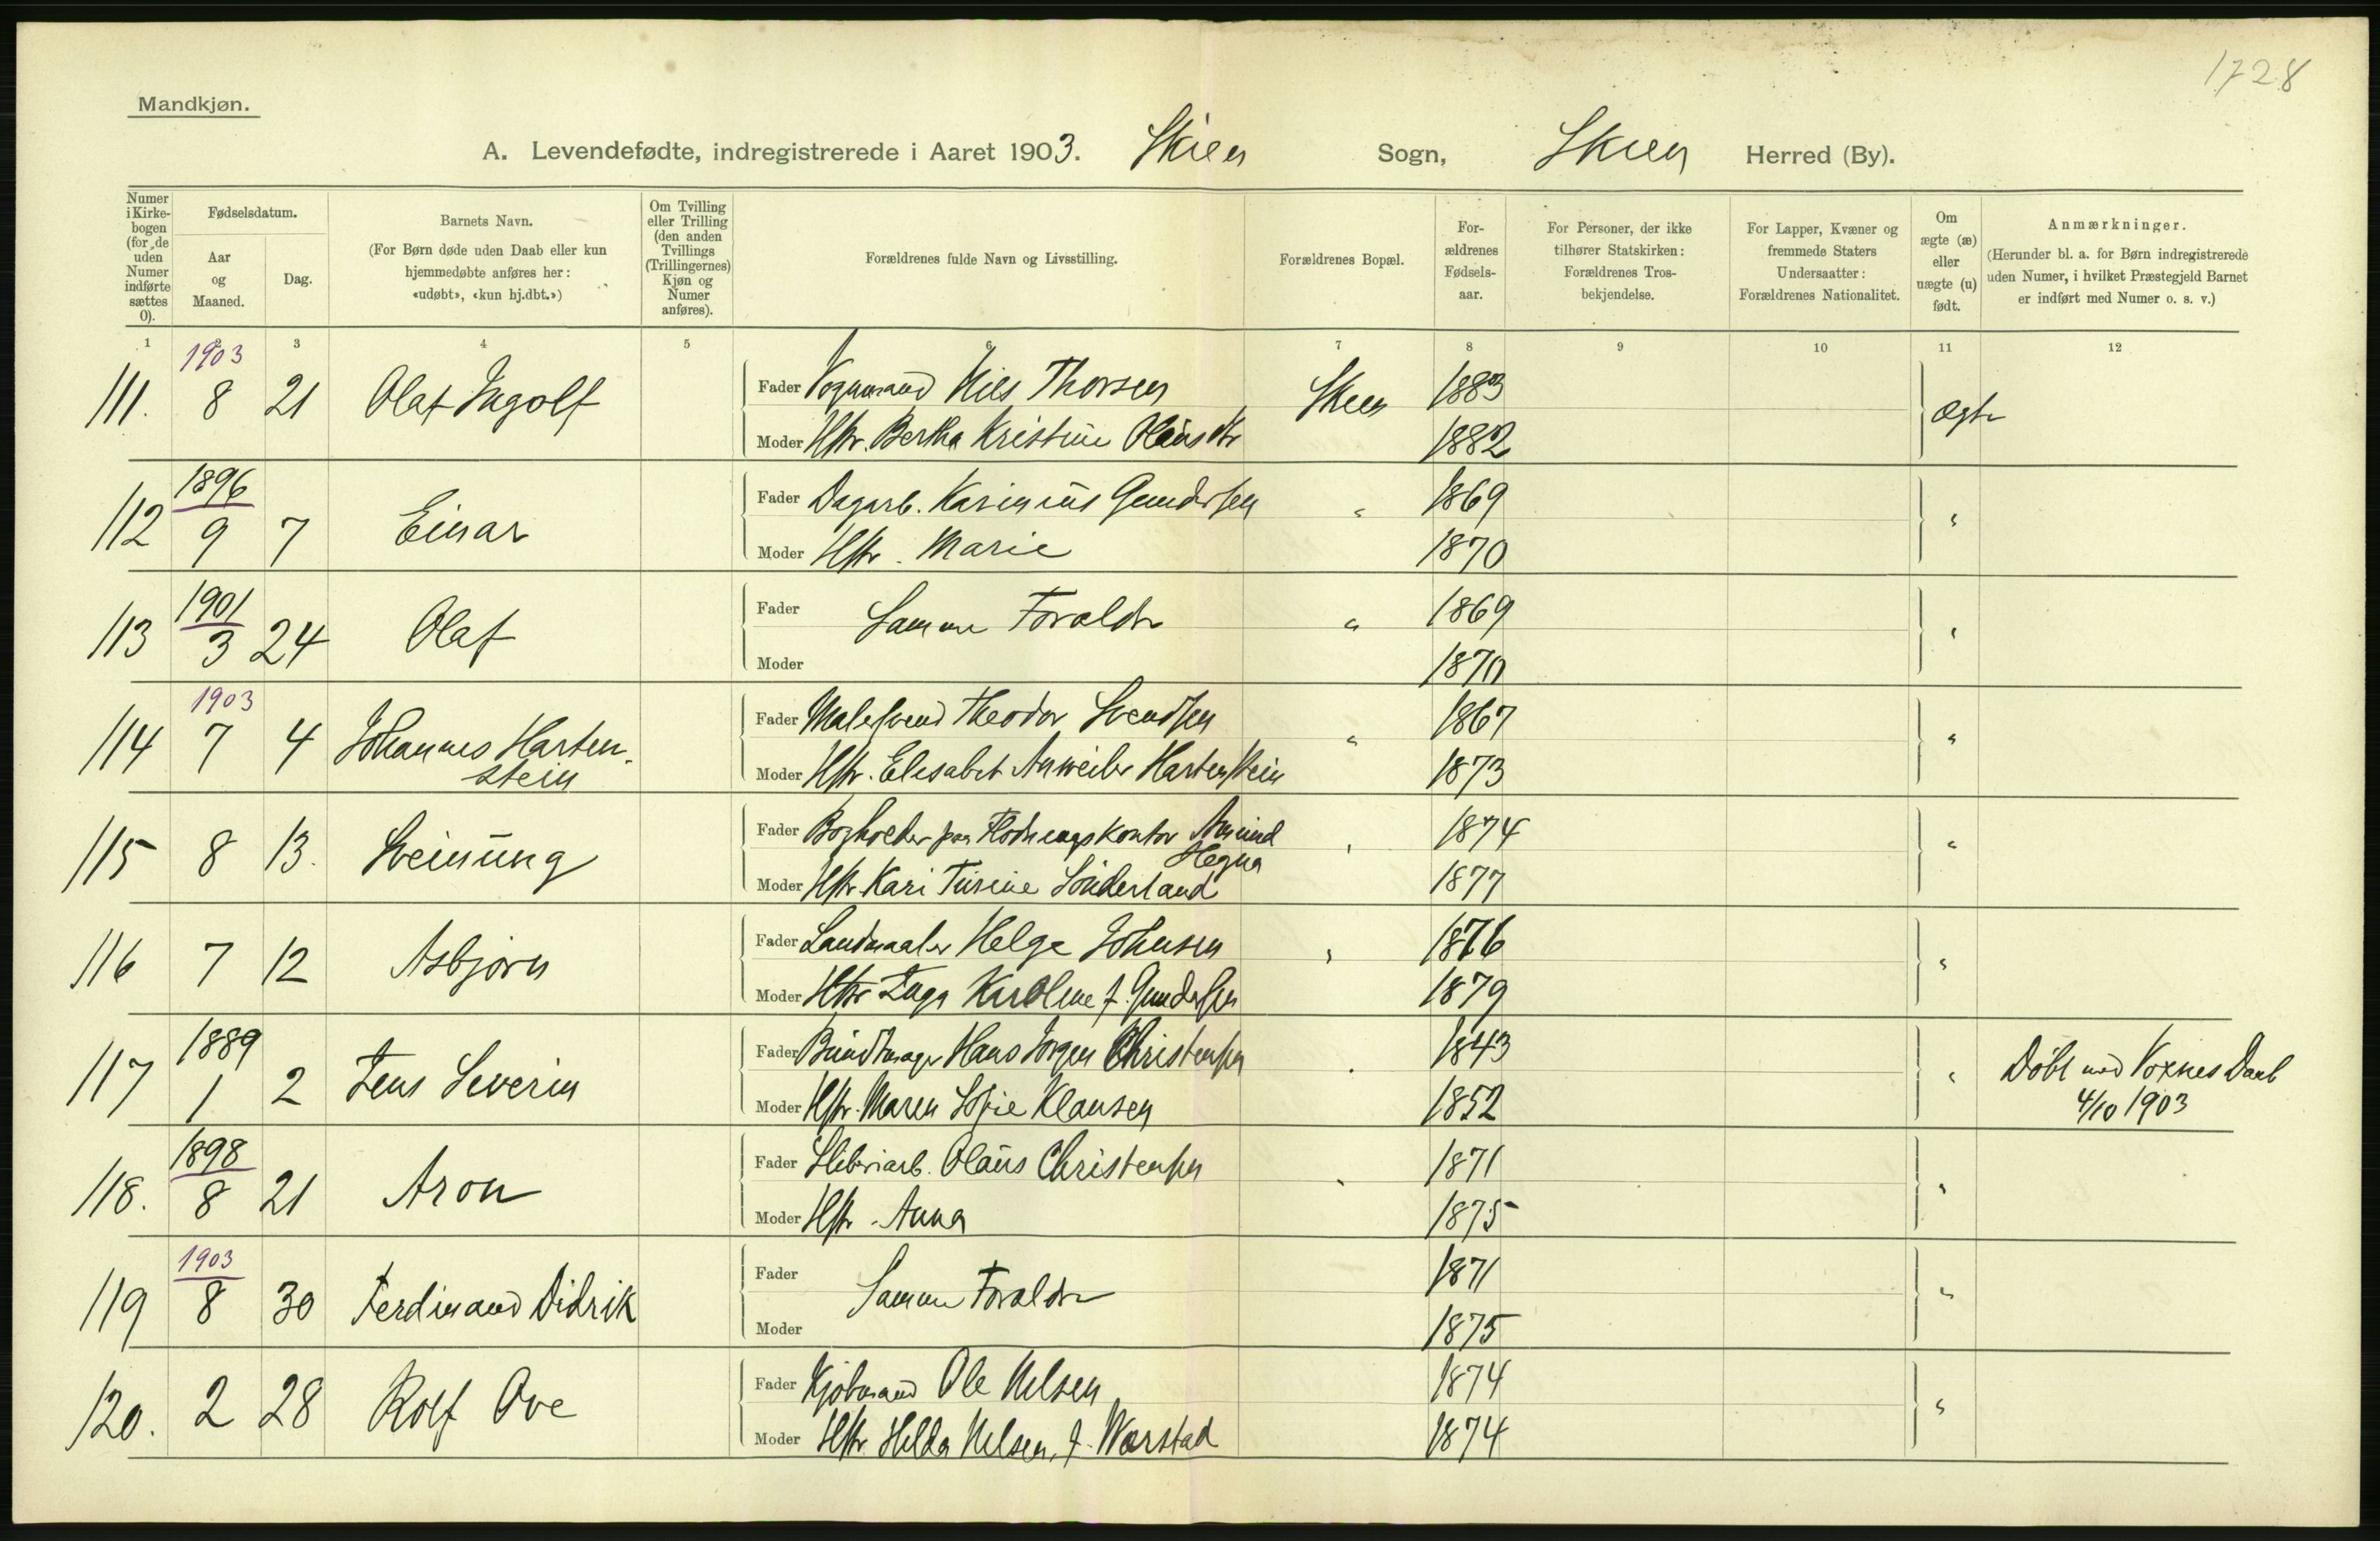 1728
Mandkjøn.
A. Levendefødte, indregistrerede i Aaret 1903. Skien Sogn, Skien Herred (By).
Numer i Kirkebogen (for de uden Numer indførte sættes 0).
Fødselsdatum.
Aar og Maaned.
Dag.
Barnets Navn.
(For Børn døde uden Daab eller kun hjemmedøbte anføres her: «udøbt», «kun hj.dbt.»)
Om Tvilling eller Trilling (den anden Tvillings (Trillingernes) Kjøn og Numer anføres).
Forældrenes fulde Navn og Livsstilling.
Forældrenes Bopæl.
Forældrenes Fødselsaar.
For Personer, der ikke tilhører Statskirken: Forældrenes Trosbekjendelse.
For Lapper, Kvæner og fremmede Staters Undersaatter: Forældrenes Nationalitet.
Om ægte (æ) eller uægte (u) født.
Anmærkninger.
(Herunder bl. a. for Børn indregistrerede uden Numer, i hvilket Præstegjeld Barnet er indført med Numer o. s. v.)
1 2 3 4 5 6 7 8 9 10 11 12
1903
111. 8 21 Olaf Ingolf Fader Vognmand Nils Thorsen Skien 1883 Ægte
Moder Hstr. Bertha Kristine Olausdtr 1882
1896
112 9 7 Einar Fader Dagarb. Karinius Gundersen " 1869 "
Moder Hstr. Marie 1870
1901
113 3 24 Olaf Fader Samme Foraldre " 1869 "
Moder 1870
1903
114 7 4 Johannes Hartenstein Fader Malersvend Theodor Svendsen " 1867 "
Moder Hstr. Elisabet Anweiler Hartenstein 1873
115 8 13. Sveinung Fader Bogholder paa Amund Hegna " 1874 "
Moder Hstr. Kari Turine Sönderland 1877
116 7 12 Asbjørn Fader Landmaaler Helge Johnsen " 1876 "
Moder Hstr Inga Karoline f. Gundersen 1879
1889
117 1 2 Jens Severin Fader Bundtmager Hans Jørgen Christensen " 1843 " Døbt med Voxnes Daab
Moder Hstr. Maren Sofie Klausen 1852 4/10 1903
1898
118. 8 21 Aron Fader Sliberiarb. Olaus Christensen " 1871 "
Moder Hstr. Anna 1875
1903
119 8 30 Ferdinand Didrik Fader Samme Foraldre 1871 "
Moder 1875
120. 2 28 Rolf Ove Fader Kjøbmand Ole Nilsen 1874 "
Moder Hstr. Hilda Nilsen, f. Wærstad 1874